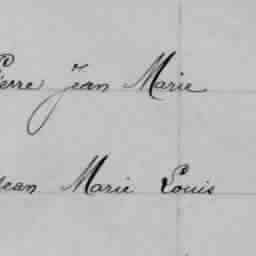 Pierre Jean Marie
Jean Marie Louis